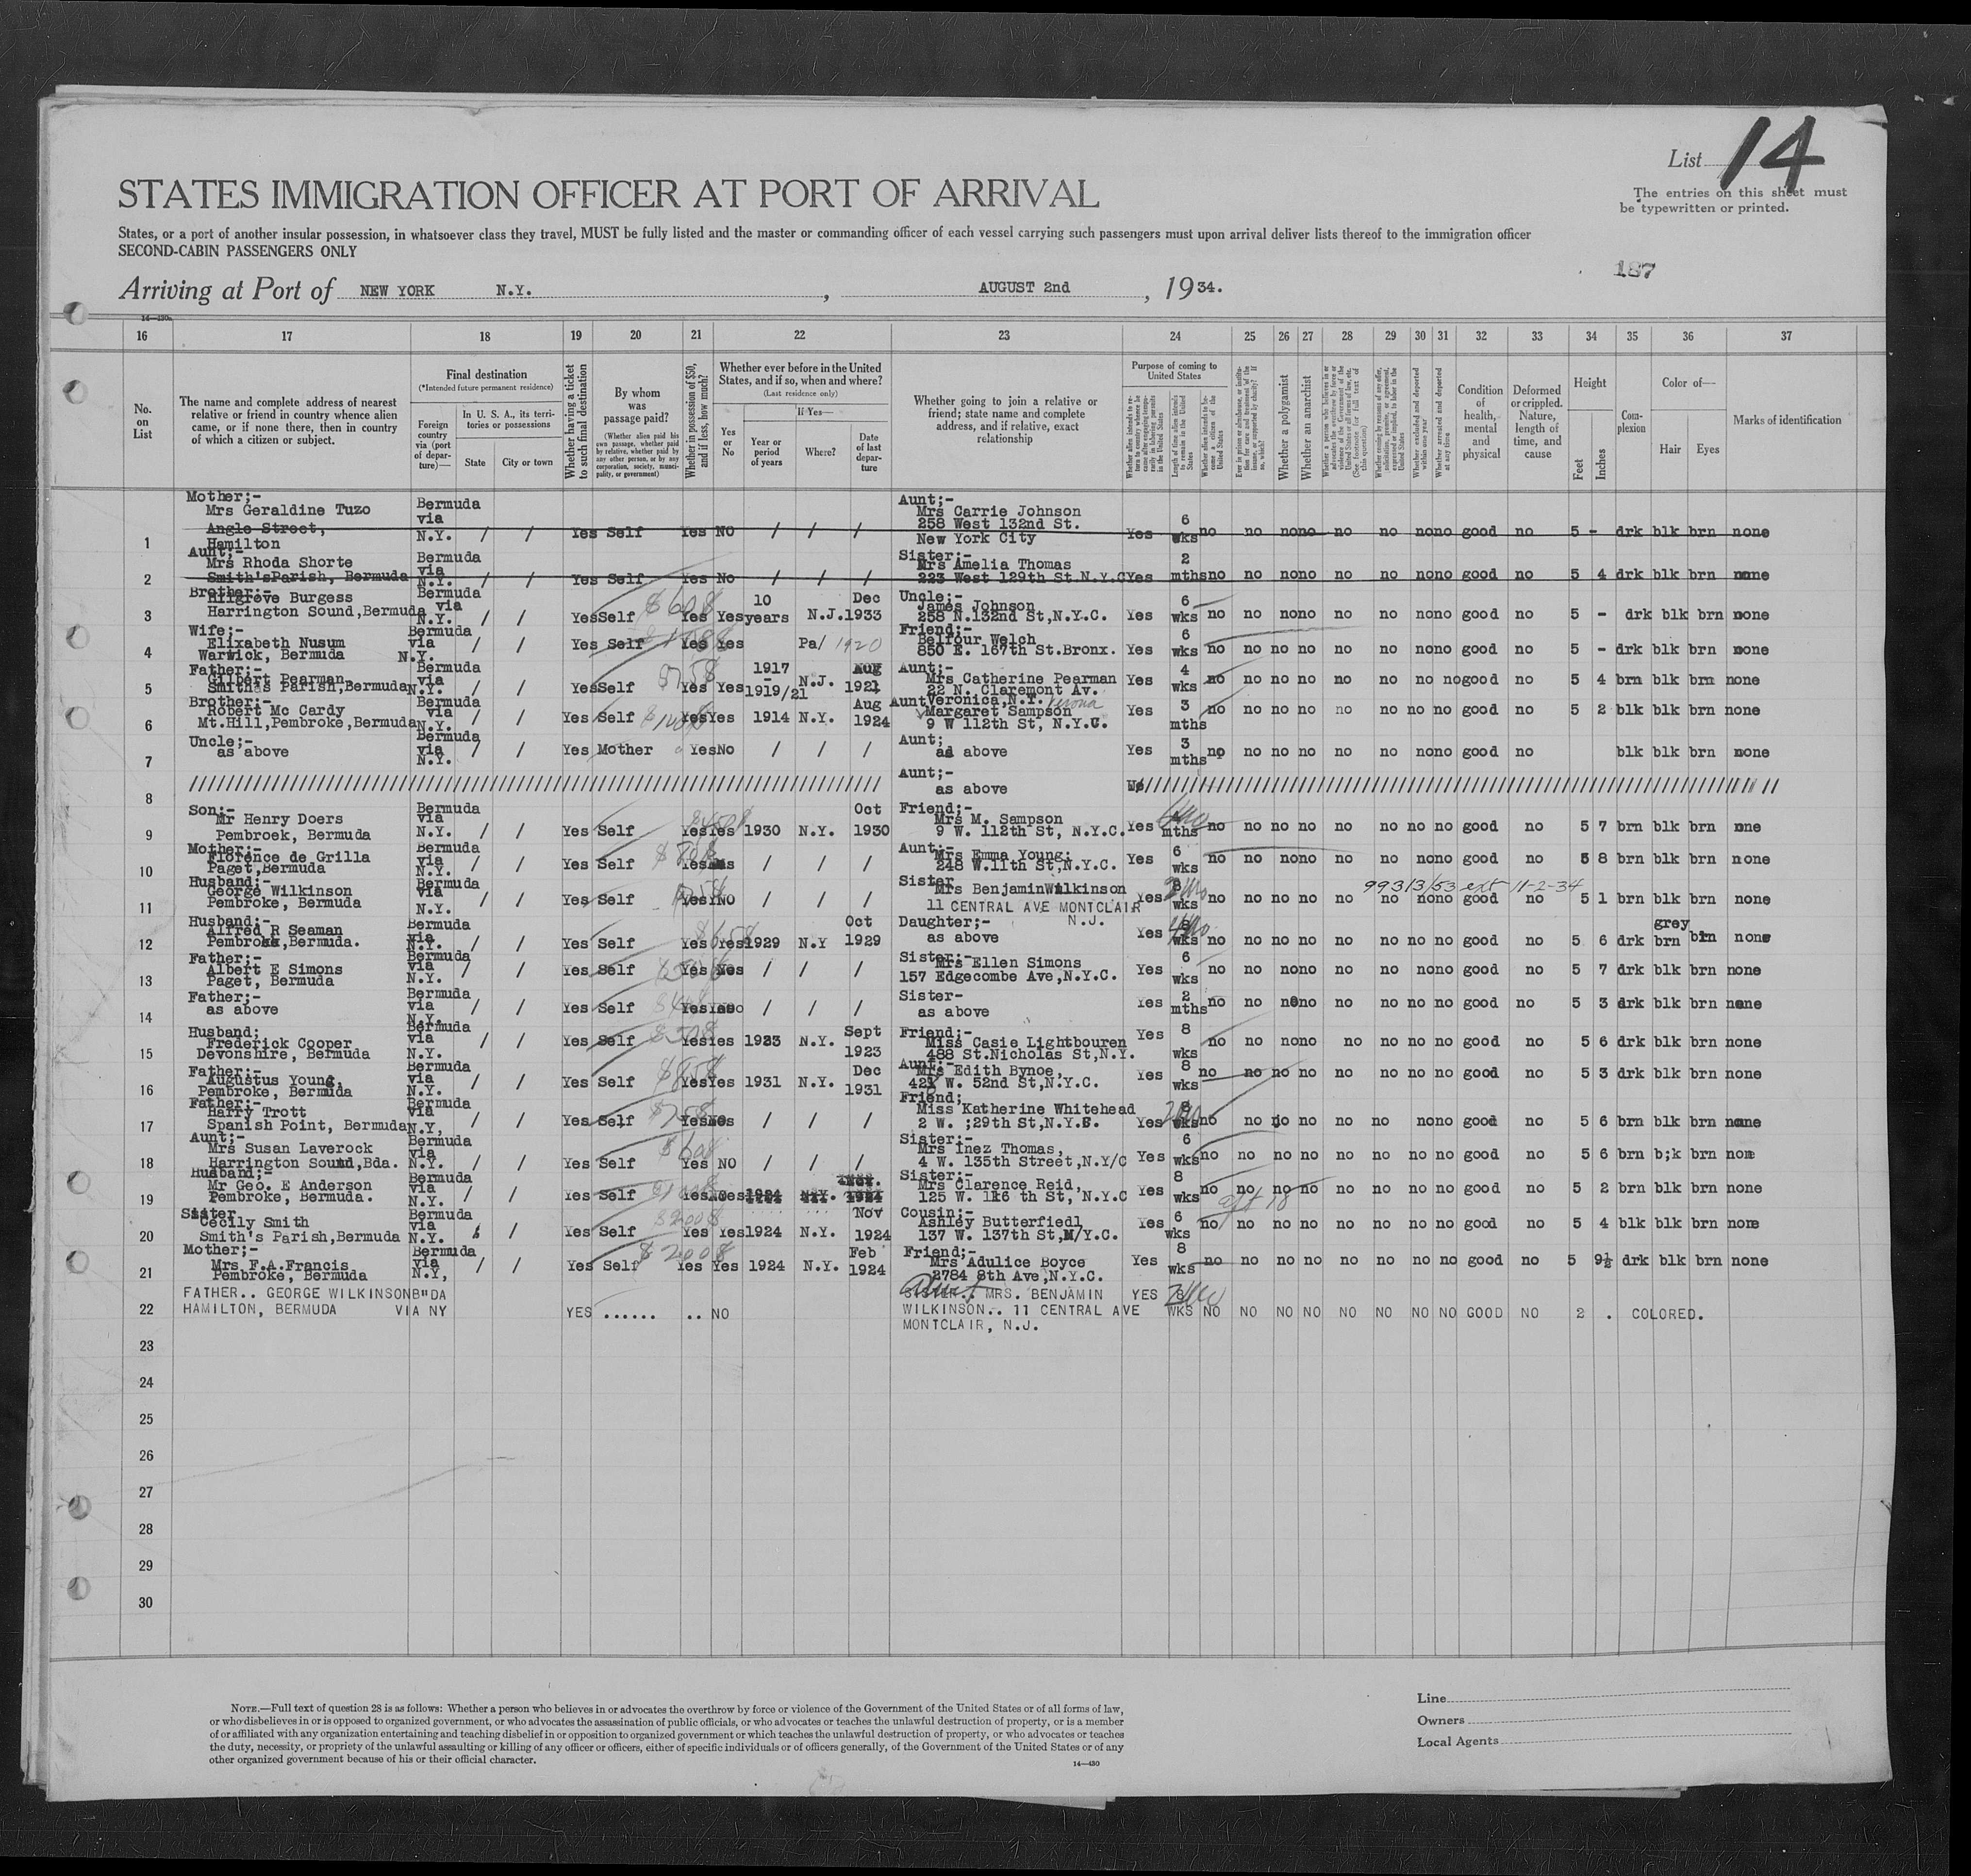 List 14
The entries on this sheet must
be typewritten or printed.
STATES IMMIGRATION OFFICER AT PORT OF ARRIVAL
States, or a port of another insular possession, in whatsoever class they travel, MUST be fully listed and the master or commanding officer of each vessel carrying such passengers must upon arrival deliver lists thereof to the immigration officer
SECOND-CABIN PASSENGERS ONLY
187
Arriving at Port of NEW YORK N.Y. , AUGUST 2nd , 1934.
14—430
16 17 18 19 20 21 22 23 24 25 26 27 28 29 30 31 32 33 34 35 36 37
No. on List
The name and complete address of nearest relative or friend in country whence alien came, or if none there, then in country of which a citizen or subject.
Final destination
(*Intended future permanent residence)
Foreign country via (port of departure)—
In U. S. A., its territories or possessions
State
City or town
Whether having a ticket to such final destination
By whom was passage paid?
(Whether alien paid his own passage, whether paid by relative, whether paid by any other person, or by any corporation, society, municipality, or government)
Whether in possession of $50, and if less, how much?
Whether ever before in the United States, and if so, when and where?
(Last residence only)
Yes or No
If Yes—
Year or period of years
Where?
Date of last departure
Whether going to join a relative or friend; state name and complete address, and if relative, exact relationship
Purpose of coming to United States
Whether a polygamist
Whether an anarchist
Condition of health, mental and physical
Deformed or crippled. Nature, length of time, and cause
Height
Feet
Inches
Complexion
Color of—
Hair
Eyes
Marks of identification
Mother;-
Mrs Geraldine Tuzo
Angle Street,
Hamilton
Bermuda via N.Y. / / Yes Self Yes NO / / /
Aunt;-
Mrs Carrie Johnson
258 West 132nd St.
New York City
1 Yes 6 wks no no no no no no no no good no 5 - drk blk brn none
Aunt;-
Mrs Rhoda Shorte
Smith'sParish, Bermuda
Bermuda via N.Y. / / Yes Self Yes No / / /
Sister;-
Mrs Amelia Thomas
223 West 129th St.N.Y.C
2 Yes 2 mths no no no no no no no no good no 5 4 drk blk brn none
Brother;-
Hilgrove Burgess
Harrington Sound,Bermuda
Bermuda via N.Y. / / Yes Self $60$ Yes Yes 10 years N.J. Dec 1933
Uncle;-
James Johnson
258 N.132nd St,N.Y.C.
3 Yes 6 wks no no no no no no no no good no 5 - drk blk brn none
Wife;-
Elixabeth Nusum
Warwick, Bermuda
Bermuda via N.Y. / / Yes Self Yes Yes Pa/ 1920
Friend;-
Belfour Welch
850 E. 167th St.Bronx.
4 Yes 6 wks no no no no no no no no good no 5 - drk blk brn none
Father;-
Gilbert Pearman
Smiths Parish,Bermuda
Bermuda via N.Y. / / Yes Self Yes Yes 1917 - 1919/21 N.J. Aug 1921
Aunt;-
Mrs Catherine Pearman
22 N. Claremont Av.
Veronica,N.Y. Verona
5 Yes 4 wks no no no no no no no no good no 5 4 brn blk brn none
Brother;-
Robert Mc Cardy
Mt.Hill,Pembroke,Bermuda
Bermuda via N.Y. / / Yes Self Yes Yes 1914 N.Y. Aug 1924
Aunt
Margaret Sampson
9 W 112th St, N.Y.C.
6 Yes 3 mths no no no no no no no no good no 5 2 blk blk brn none
Uncle;-
as above
Bermuda via N.Y. / / Yes Mother Yes No / / /
Aunt;
as above
7 Yes 3 mths no no no no no no no no good no blk blk brn none
Aunt;-
as above
8
Son;-
Mr Henry Doers
Pembroek, Bermuda
Bermuda via N.Y. / / Yes Self Yes Yes 1930 N.Y. Oct 1930
Friend;-
Mrs M. Sampson
9 W. 112th St, N.Y.C.
9 Yes mths no no no no no no no no good no 5 7 brn blk brn none
Mother;-
Florence de Grilla
Paget,Bermuda
Bermuda via N.Y. / / Yes Self Yes / / /
Aunt:-
Mrs Emma Young;
248 W.11th St,N.Y.C.
10 Yes 6 wks no no no no no no no no good no 5 8 brn blk brn none
Husband;-
George Wilkinson
Pembroke, Bermuda
Bermuda via N.Y. / / Yes Self Yes NO / / /
Sister
Mrs BenjaminWilkinson
11 CENTRAL AVE MONTCLAIR N.J.
99313/53 ext 11-2-34
11 Yes 8 wks no no no no no no no no good no 5 1 brn blk brn none
Husband;-
Alfred R Seaman
Pembroke,Bermuda.
Bermuda via N.Y. / / Yes Self Yes Yes 1929 N.Y Oct 1929
Daughter;-
as above
12 Yes wks no no no no no no no no good no 5 6 drk grey brn brn none
Father;-
Albert E Simons
Paget, Bermuda
Bermuda via N.Y. / / Yes Self Yes / / /
Sister;-
Mrs Ellen Simons
157 Edgecombe Ave,N.Y.C.
13 Yes 6 wks no no no no no no no no good no 5 7 drk blk brn none
Father;-
as above
Bermuda via N.Y. / / Yes Self Yes / / /
Sister-
as above
14 Yes 2 mths no no no no no no no no good no 5 3 drk blk brn none
Husband;
Frederick Cooper
Devonshire, Bermuda
Bermuda via N.Y. / / Yes Self Yes Yes 1923 N.Y. Sept 1923
Friend;-
Miss Casie Lightbouren
488 St.Nicholas St,N.Y.
15 Yes 8 wks no no no no no no no no good no 5 6 drk blk brn none
Father;-
Augustus Young,
Pembroke, Bermuda
Bermuda via N.Y. / / Yes Self Yes Yes 1931 N.Y. Dec 1931
Aunt:-
Mrs Edith Bynoe,
W. 52nd St,N.Y.C.
16 Yes 8 wks no no no no no no no no good no 5 3 drk blk brn none
Father;-
Harry Trott
Spanish Point, Bermuda
Bermuda via N.Y, / / Yes Self Yes / / /
Friend;
Miss Katherine Whitehead
2 W. ;29th St,N.Y.
17 Yes wks no no no no no no no no good no 5 6 brn blk brn none
Aunt;-
Mrs Susan Laverock
Harrington Sound,Bda.
Bermuda via N.Y. / / Yes Self $60$ Yes NO / / /
Sister;-
Mrs Inez Thomas,
4 W. 135th Street,N.Y/C
18 Yes 6 wks no no no no no no no no good no 5 6 brn b;k brn none
Husband;-
Mr Geo. E Anderson
Pembroke, Bermuda.
Bermuda via N.Y. / / Yes Self Yes 1924 N.Y. Nov. 1924
Sister;-
Mrs Clarence Reid,
125 W. 1k6 th St, N.Y.C
19 Yes 8 wks no no no no no no no no good no 5 2 brn blk brn none
Sister
Cecily Smith
Smith's Parish,Bermuda
Bermuda via N.Y. / Yes Self $200$ Yes Yes 1924 N.Y. Nov 1924
Cousin;-
Ashley Butterfiedl
137 W. 137th St,N/Y.C.
20 Yes 6 wks no no no no no no no no good no 5 4 blk blk brn none
Mother;-
Mrs F.A.Francis
Pembroke, Bermuda
Bermuda via N.Y, / / Yes Self $200$ Yes Yes 1924 N.Y. Feb 1924
Friend;-
Mrs Adulice Boyce
2784 8th Ave,N.Y.C.
21 Yes 8 wks no no no no no no no no good no 5 9½ drk blk brn none
FATHER.. GEORGE WILKINSON B"DA
HAMILTON, BERMUDA VIA NY
YES ...... .. NO
Aunt MRS. BENJAMIN
WILKINSON.. 11 CENTRAL AVE
MONTCLAIR, N.J.
22 YES WKS NO NO NO NO NO NO NO NO GOOD NO 2 . COLORED.
23
24
25
26
27
28
29
30
NOTE.—Full text of question 28 is as follows: Whether a person who believes in or advocates the overthrow by force or violence of the Government of the United States or of all forms of law,
or who disbelieves in or is opposed to organized government, or who advocates the assassination of public officials, or who advocates or teaches the unlawful destruction of property, or is a member
of or affiliated with any organization entertaining and teaching disbelief in or opposition to organized government or which teaches the unlawful destruction of property, or who advocates or teaches
the duty, necessity, or propriety of the unlawful assaulting or killing of any officer or officers, either of specific individuals or of officers generally, of the Government of the United States or of any
other organized government because of his or their official character.
14—430
Line
Owners
Local Agents